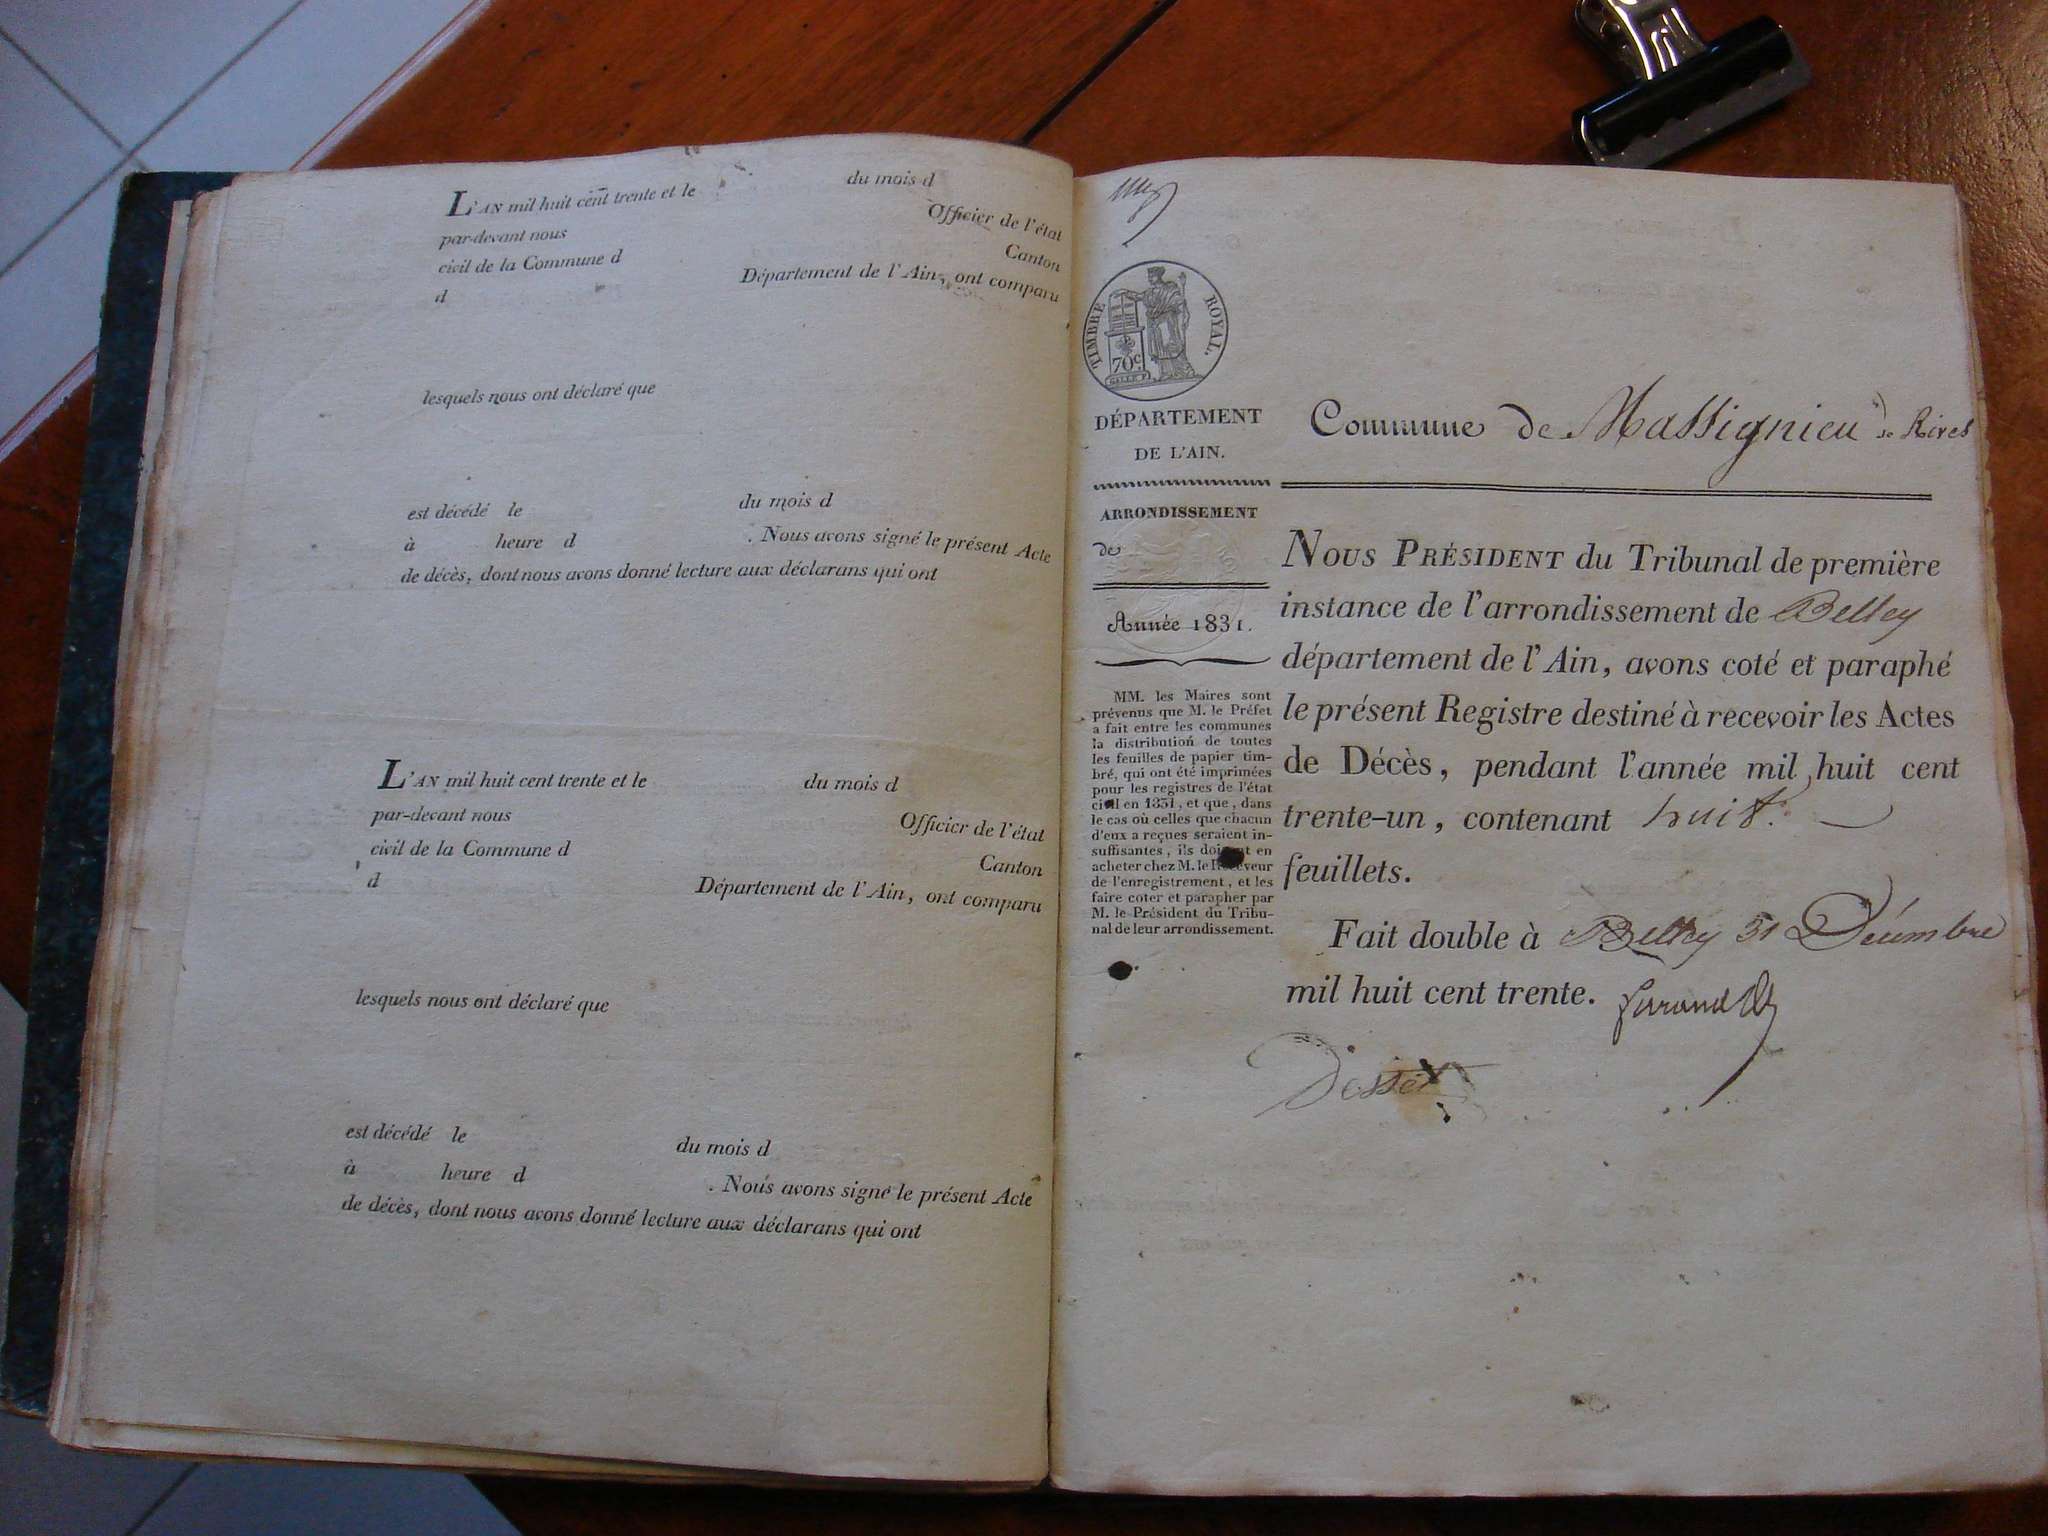 L'AN mil huit cent trente et le du mois d
par-devant nous Officier de l'état
civil de la Commune d Canton
d Département de l'Ain, ont comparu
lesquels nous ont déclaré que
est décédé le du mois d
à heure d . Nous avons signé le présent Acte
de décès, dont nous avons donné lecture aux déclarans qui ont
L'AN mil huit cent trente et le du mois d
par-devant nous Officier de l'état
civil de la Commune d Canton
d Département de l'Ain, ont comparu
lesquels nous ont déclaré que
est décédé le du mois d
à heure d . Nous avons signé le présent Acte
de décès, dont nous avons donné lecture aux déclarans qui ont
TIMBRE ROYAL.
70c.
DÉPARTEMENT
DE L'AIN.
ARRONDISSEMENT
de
Année 1831.
MM. les Maires sont
prévenus que M. le Préfet
a fait entre les communes
la distribution de toutes
les feuilles de papier tim-
bré, qui ont été imprimées
pour les registres de l'état
civil en 1831, et que, dans
le cas où celles que chacun
d'eux a reçues seraient in-
suffisantes, ils doivent en
acheter chez M. le Receveur
de l'enregistrement, et les
faire coter et parapher par
M. le Président du Tribu-
nal de leur arrondissement.
Commune de Massignieu de Rives
NOUS PRÉSIDENT du Tribunal de première
instance de l'arrondissement de Belley
département de l'Ain, avons coté et paraphé
le présent Registre destiné à recevoir les Actes
de Décès, pendant l'année mil huit cent
trente-un, contenant huit.
feuillets.
Fait double à Belley 31 Décembre
mil huit cent trente.